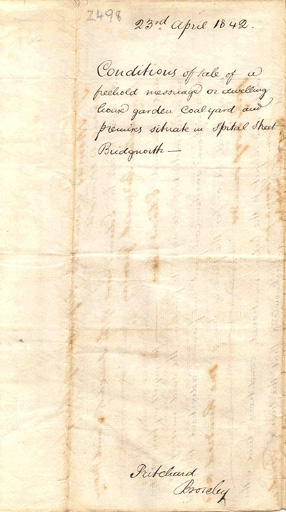 2498
23rd April 1842.
Conditions of sale of a
freehold messuage or dwelling
house garden Coal yard and
premises situate in Spital Street
Bridgnorth —
Pritchard
Broseley